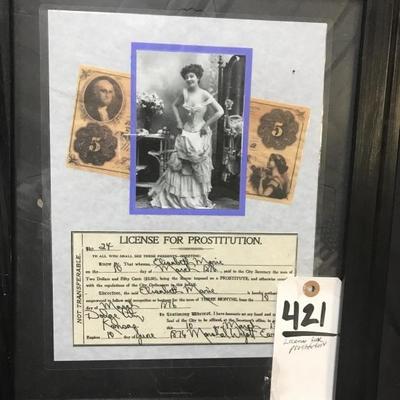 5
5
LICENSE FOR PROSTITUTION.
No. 24
TO ALL WHO SHALL SEE THESE PRESENTS, GREETING:
KNOW Ye, That whereas, Elizabeth Marie
on the 10 day of March 1876, paid to the City Secretary the sum of
Two Dollars and Fifty Cents ($2.50), being the license imposed on a Prostitute, and otherwise
with the regulations of the City Ordinances
Therefore, the said Elizabeth Marie is hereby
empowered to follow said occupation or business for the term of THREE MONTHS, from the 10
day of March 1876
Dodge City In Testimony Whereof, I have hereunto set my hand and
Kansas Seal of the City to be affixed, at the Secretary's office, in
this 10 March
Expires 10 June 1876 Marshal Wyatt
NOT TRANSFERABLE.
421
LICENSE FOR
PROSTITUTION